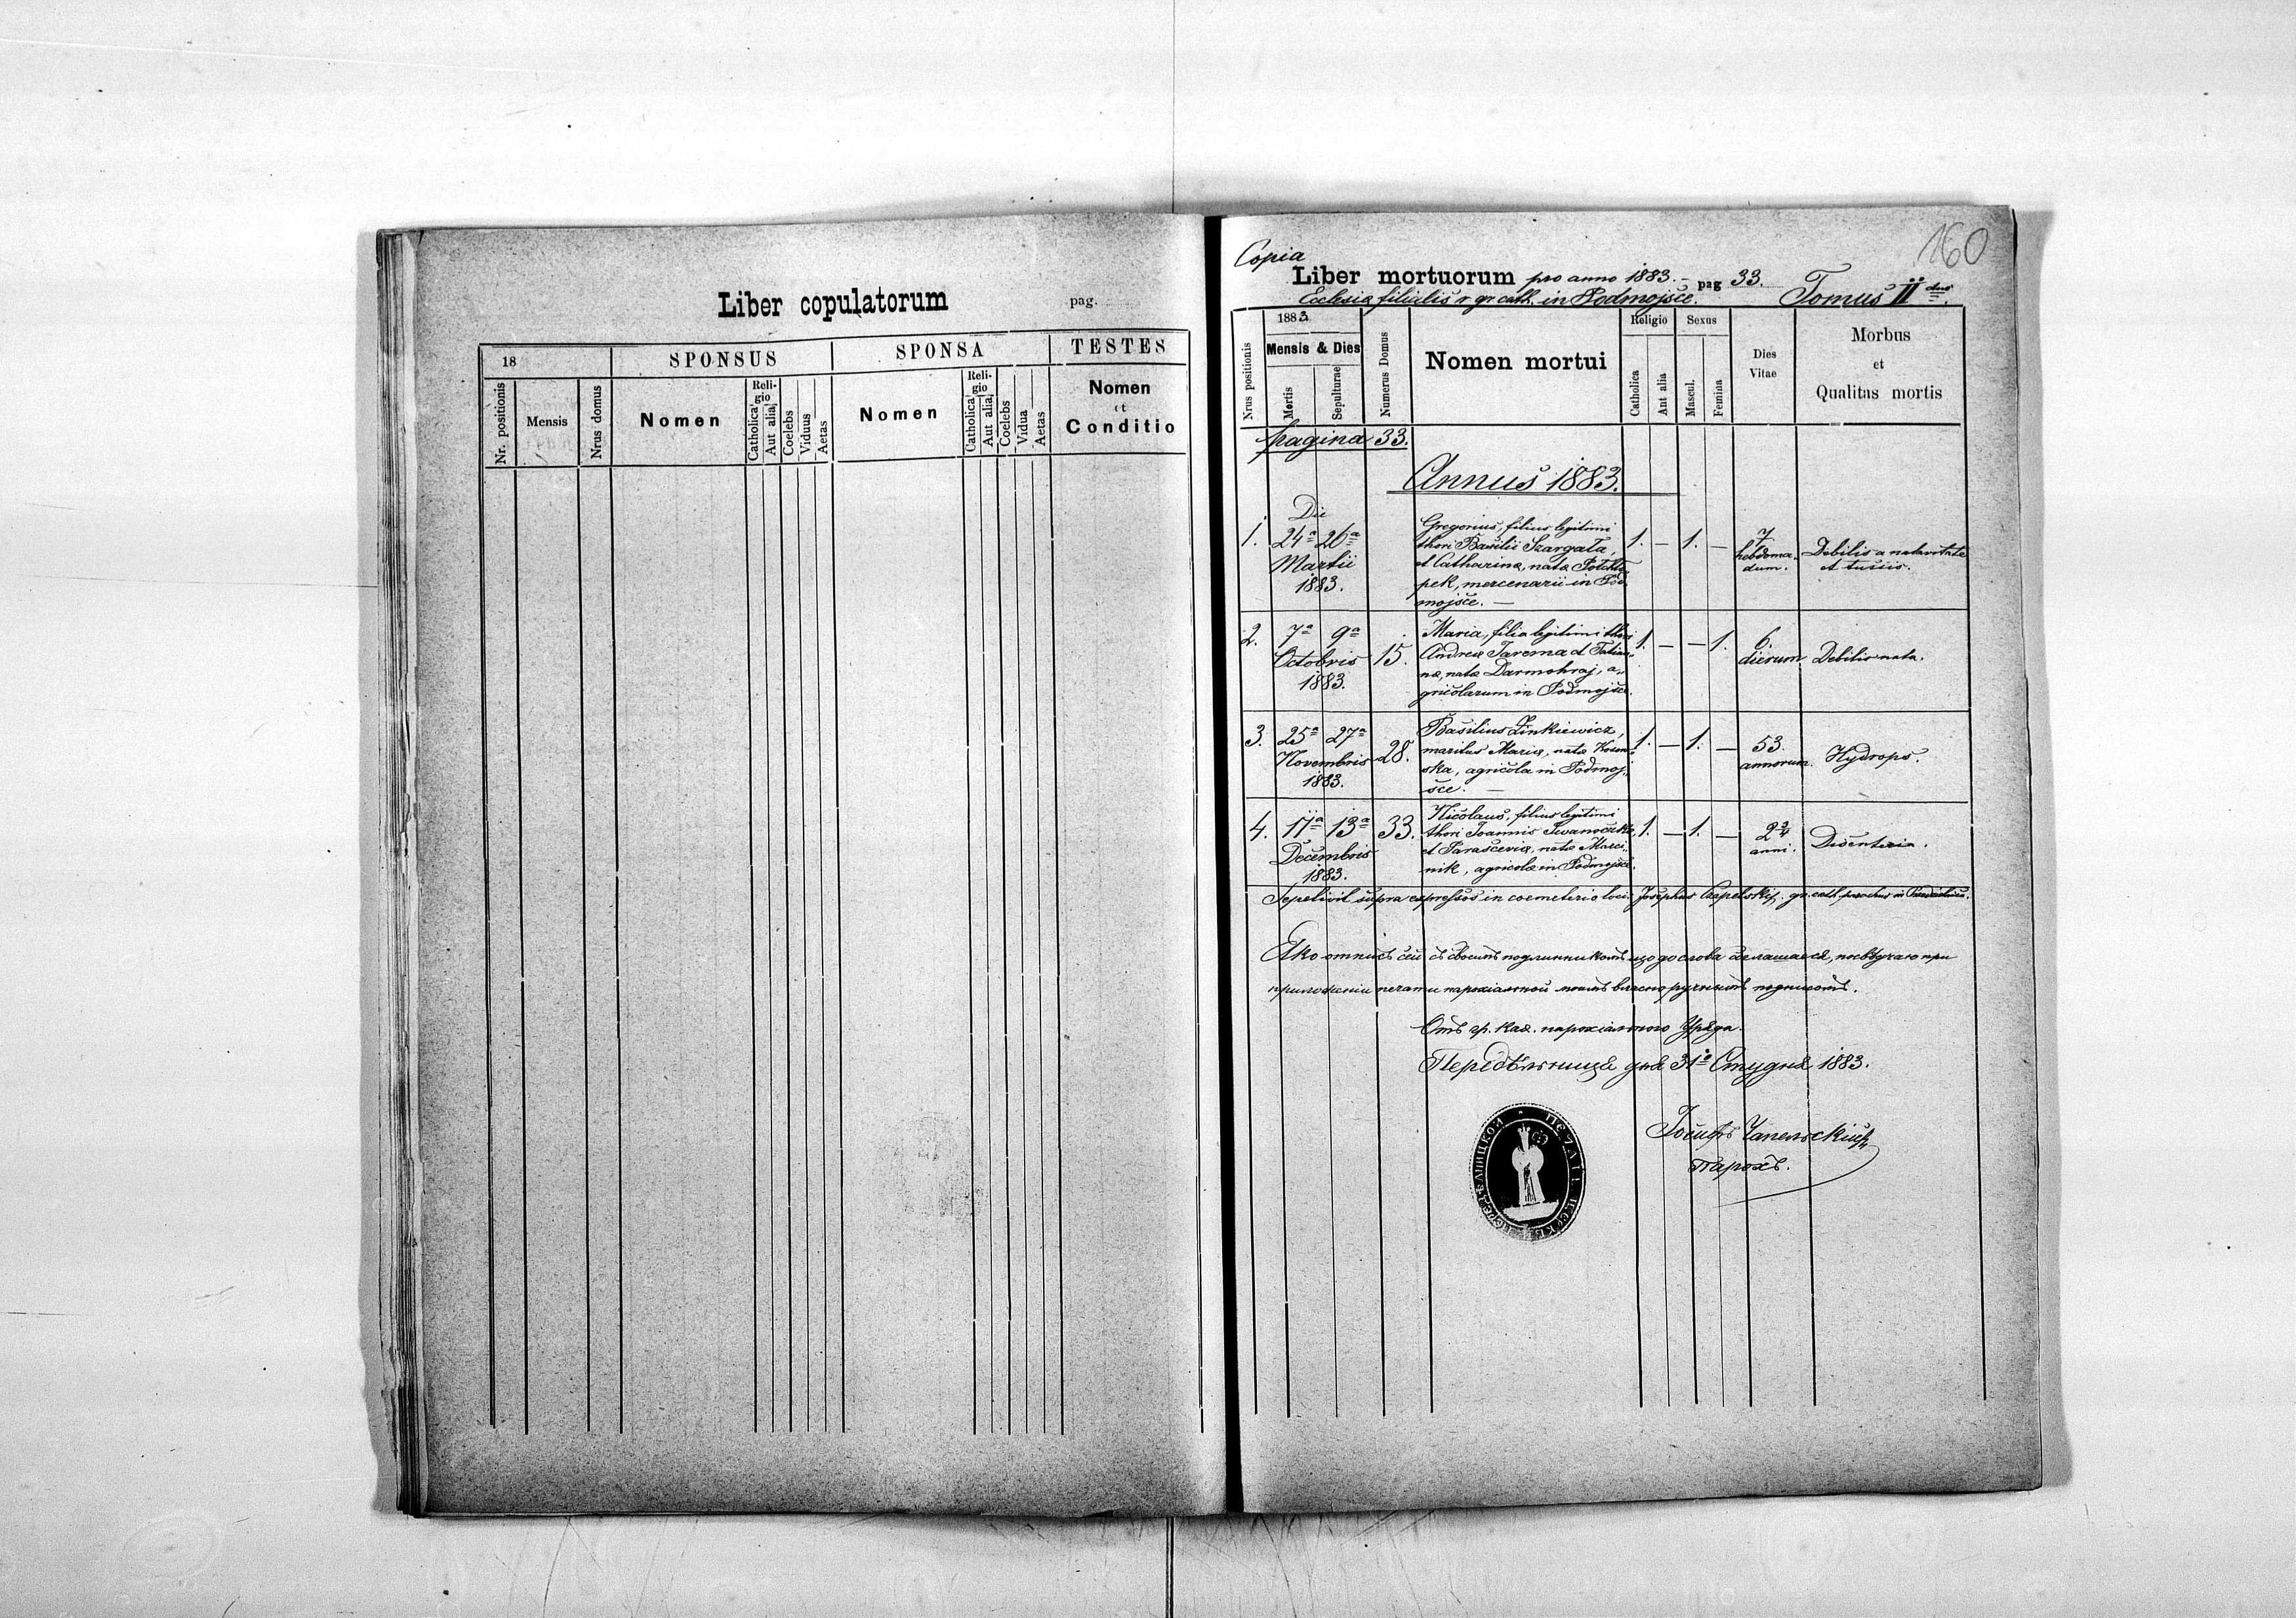 Liber copulatorum
pag.
18
SPONSUS
SPONSA
TESTES
Nr. positionis
Mensis
Nrus domus
Nomen
Reli-
gio
Catholica
Aut alia
Coelebs
Viduus
Aetas
Nomen
Reli-
gio
Catholica
Aut alia
Coelebs
Vidua
Aetas
Nomen
et
Conditio
160
Copia
Liber mortuorum pro anno 1883. - pag 33.
Ecclesia filialis r. gr. cath. in Podmojsce. Tomus II dus
Nrus positionis
1883
Mensis & Dies
Mortis
Sepulturae
Numerus Domus
Nomen mortui
Religio
Catholica
Aut alia
Sexus
Mascul.
Femina
Dies
Vitae
Morbus
et
Qualitas mortis
pagina 33.
Annus 1883.
1.
Die
24a 26a
Martii
1883.
Gregorius, filius legitimi
thori Basilii Szargata,
et Catharina, nata
pek, mercenarii in Pod
mojsce. —
1. — 1. —
7
hebdoma-
dum.
Debilis a nativitate
et tussis.
2.
7a 9a
Octobris
1883.
15.
Maria, filia legitimi thori
Andreæ Jarema et Tatian-
næ, nata Darmohraj, a-
gricolarum in Podmojsce.
1. — — 1.
6.
dierum
Debilis nata.
3.
25a 27a
Novembris
1883.
28.
Basilius Linkiewicz,
maritus Mariæ, nata
ska, agricola in Podmoj-
sce. —
1. — 1. —
53.
annorum.
Hydrops.
4.
11a 13a
Decembris
1883.
33.
Nicolaus, filius legitimi
thori Joannis
et Parasceviæ, nata Marci-
nik, agricolæ in Podmojsce.
1. — 1. —
2 3/4
anni.
Disenteria.
Sepelivit supra expressos in coemeterio loci: Josephus Czapelskij, gr. cath. parochus in
Яко отписъ сей съ своимъ подлинникомъ що до слова, посвѣдчаю при
приложеніи печати парохіальной моимъ власноручнымъ подписомъ.
Отъ гр. каѳ. парохіального Уряда.
Перedѣльница дня 31го Студня 1883.
Іосифъ Чапельскій
Парохъ.
ПЕЧАТЬ ЦЕРКВИ ПЕРЕДѢЛНИЦКОЙ